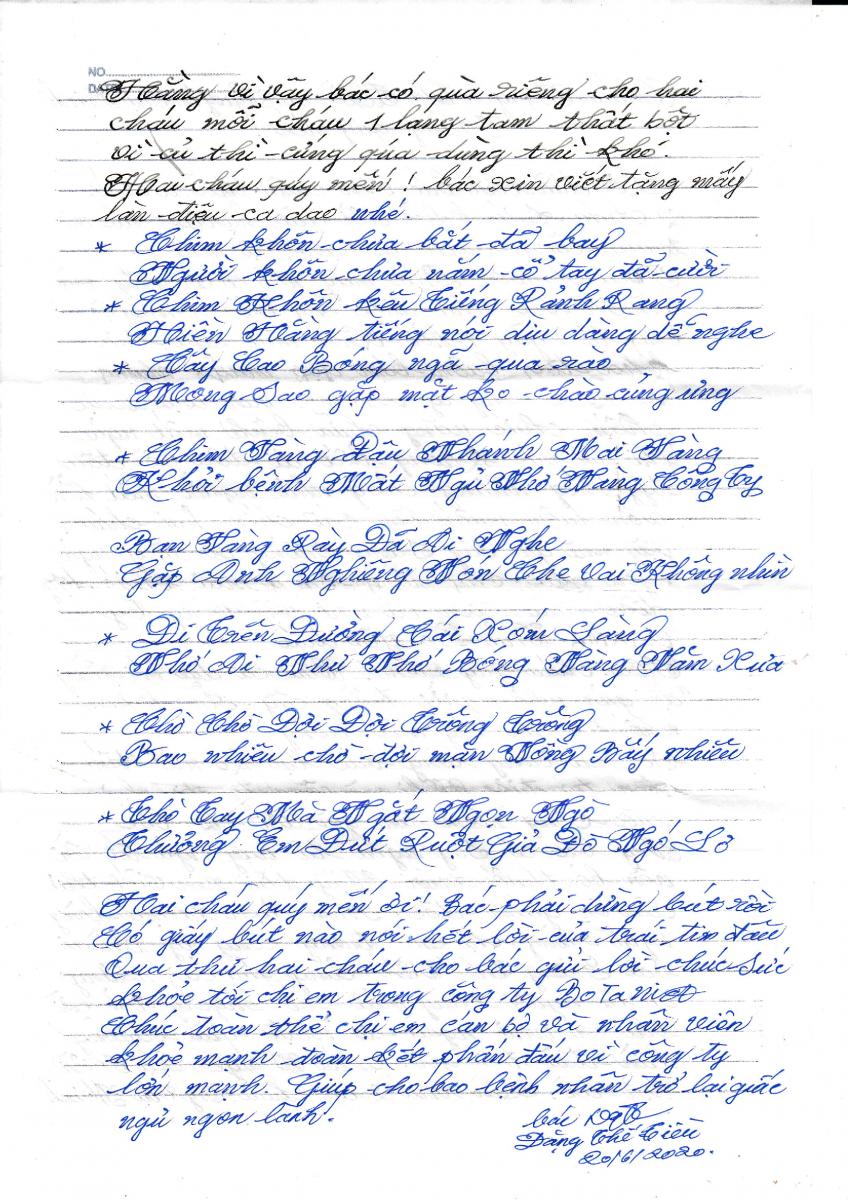 NO
DA
Hằng vì vậy bác có quà riêng cho hai
cháu mỗi cháu 1 lạng tam thất bột
vì củ thì cứng quá dùng thì khó.
Hai cháu quý mến! bác xin viết tặng mấy
làn điệu ca dao nhé.
* Chim khôn chưa bắt đã bay
Người khôn chưa nắm cổ tay đã cười
* Chim Khôn kêu Tiếng Rảnh Rang
Hiền Hằng tiếng nói dịu dàng dễ nghe
* Cây Cao Bóng ngã qua rào
Mong Sao gặp mặt ko chào cũng ưng
* Chim Vàng Đậu Nhánh Mai Vàng
Khỏi bệnh Mất Ngủ Nhớ Nàng Công Ty
Ban Hàng Rày Đã Đi Nghe
Gặp Anh Nghiêng Nón Che Vai Không nhìn
* Đi Trên Đường Cái Xóm Làng
Nhớ Ai Như Nhớ Bóng Nàng Năm Xưa
* Chờ Chờ Đợi Đợi Trông Trông
Bao nhiêu chờ đợi mặn Nồng Bấy nhiêu
* Thò Tay Mà Ngắt Ngọn Ngò
Thương Em Đứt Ruột Giả Đò Ngó Lơ
Hai cháu quý mến ơi! Bác phải dừng bút rồi
Có giấy bút nào nói hết lời của trái tim đâu
Qua thư hai cháu cho bác gửi lời chúc Sức
khỏe tới chị em trong công ty BoTaNiA
Chúc toàn thể chị em cán bộ và nhân viên
khỏe mạnh đoàn kết phấn đấu vì công ty
lớn mạnh. Giúp cho bao bệnh nhân trở lại giấc
ngủ ngon lành.
bác
Đặng Thế Tiến
20/6/2020.